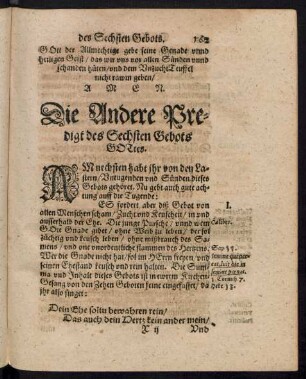 des Sechsten Gebots.
GOtt der Allmechtige gebe seine Genade vnnd
heiligen Geist / das wir vns vor allen Sünden vnnd
schanden hüten / vnd dem Vnzucht Teuffel
nicht raum geben /
A M E N.
Die Andere Pre-
digt des Sechsten Gebots
GOttes.
AM nechsten habt ihr von den La-
stern / Vntugenden vnd Sünden dieses
Gebots gehöret. Nu gebt auch gute ach-
tung auff die Tugende:
ES fordert aber diß Gebot von
I.
allen Menschen scham / Zucht vnd Keuscheit / in vnd
ausserhalb der Ehe. Die junge Pursche / vnnd wem
GOtt Gnade gibet / ohne Weib zu leben / der sol
züchtig vnd keusch leben / ohne mißbrauch des Sa-
mens / vnd one vnordentliche flammen des Hertzens.
Wer die Gnade nicht hat / sol im HErrn freyen / vnd
seinen Ehestand keusch vnd rein halten. Die Sum-
ma vnd Inhalt dieses Gebots ist in ewrem Kirchen-
Gesang von den Zehen Geboten feine eingefasset / da
ihr also singet:
Dein Ehe soltu bewahren rein /
Das auch dein Hertz kein ander mein /
X ij
Vnd